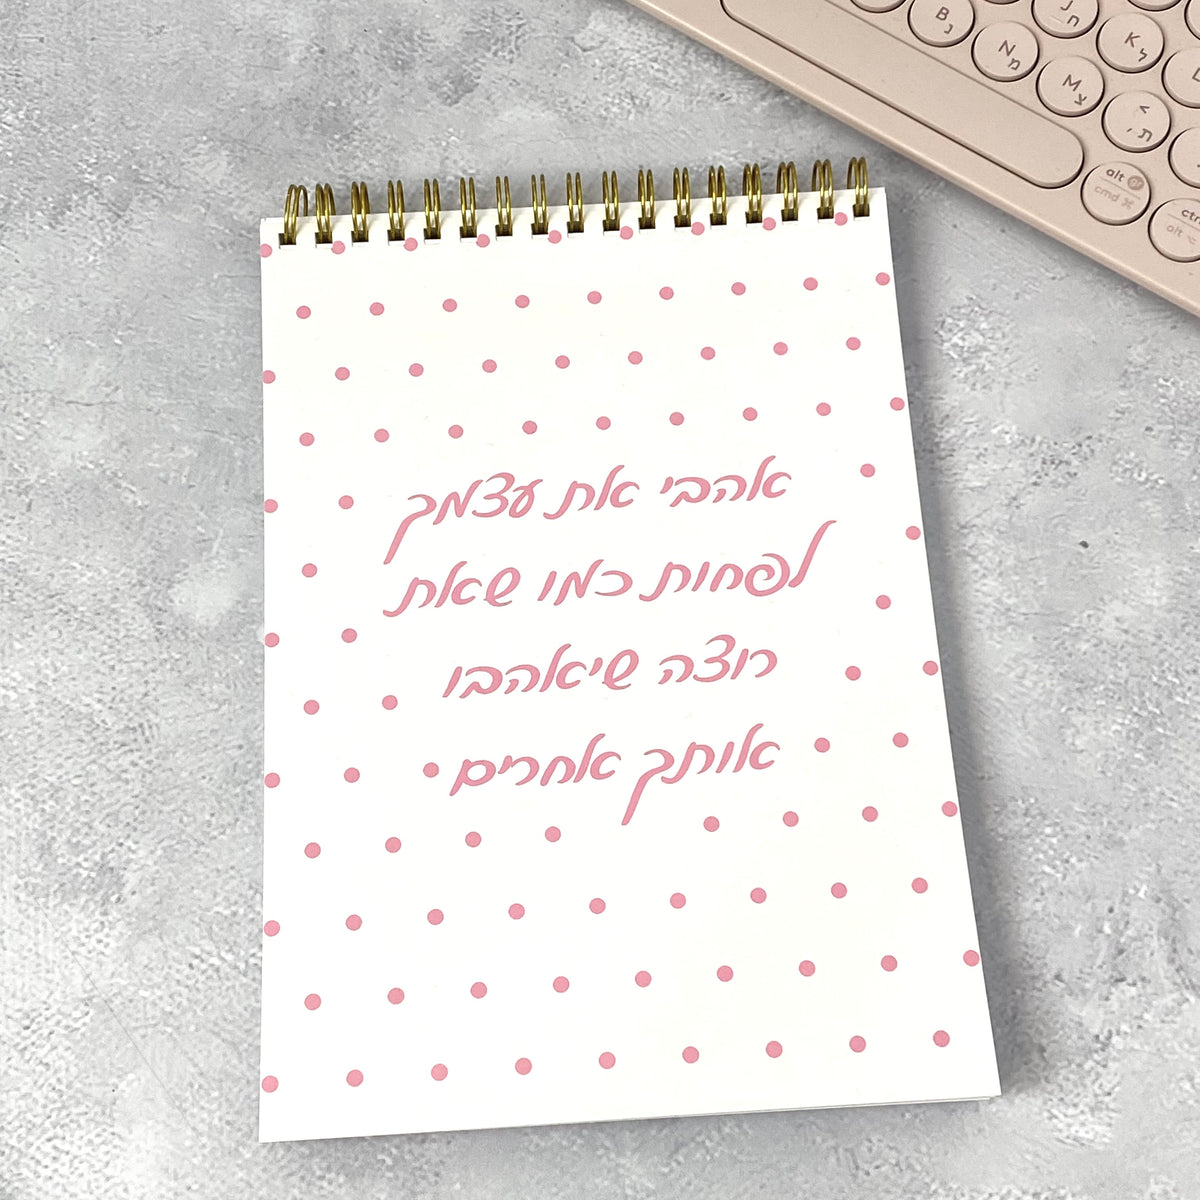 אהבי את עצמך
לפחות כמו שאת
רוצה שיאהבו
אותך אחרים
B נ
N מ
ח
K ל
M צ
< ת ,
alt gr
cmd ⌘
ctr
alt ⌥